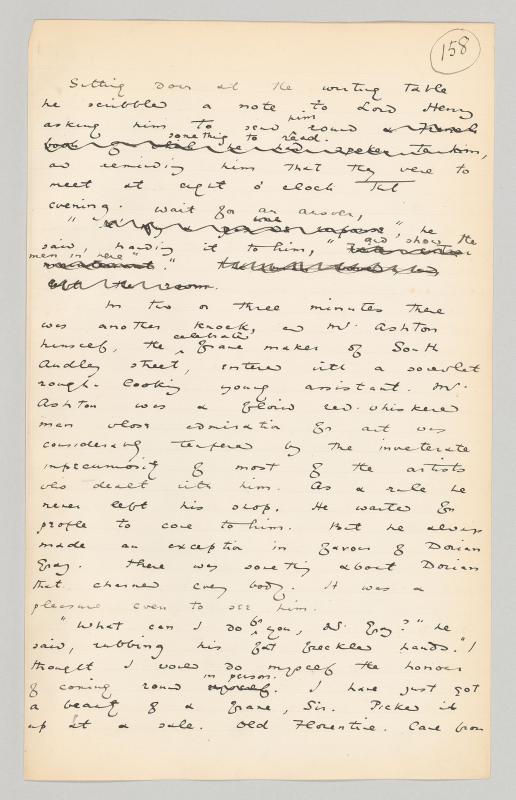 158
Sitting down at the writing table
he scribbled a note to Lord Henry
him
asking him to send round a French
something to read.
book
and reminding him that they were to
meet at eight o'clock that
evening. "Wait for an answer,"
he
said, handing it to him, "and show the
men in here."
In two or three minutes there
was another knock, and Mr Ashton
celebrated
himself, the frame maker of South
Audley street, entered with a somewhat
rough-looking young assistant. Mr.
Ashton was a florid red-whiskered
man whose admiration for art was
considerably tempered by the inveterate
impecuniosity of most of the artists
who dealt with him. As a rule he
never left his shop. He waited for
people to come to him. But he always
made an exception in favour of Dorian
Gray. There was something about Dorian
that charmed everybody. It was a
pleasure even to see him.
for
"What can I do you, Mr. Gray?" he
said, rubbing his fat freckled hands. "I
thought I would do myself the honour
in person.
of coming round myself. I have just got
a beauty of a frame, Sir. Picked it
up at a sale. Old Florentine. Came from